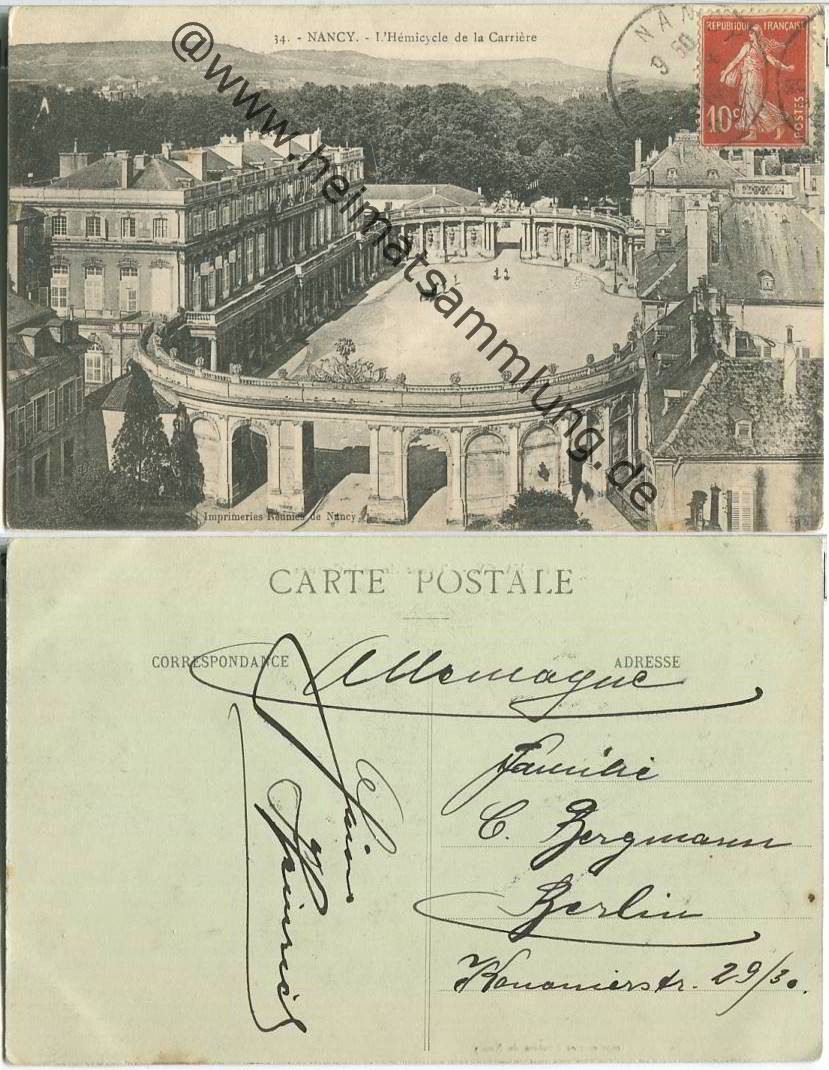 34. - NANCY. - L'Hémicycle de la Carrière
NAN
9 50
REPUBLIQUE FRANÇAISE
10c
POSTES
@www.heimatsammlung.de
Imprimeries Réunies de Nancy
CARTE POSTALE
CORRESPONDANCE
ADRESSE
Allemagne
Familie
C. Bergmann
Berlin
Kononierstr. 29/30.
Heinrich